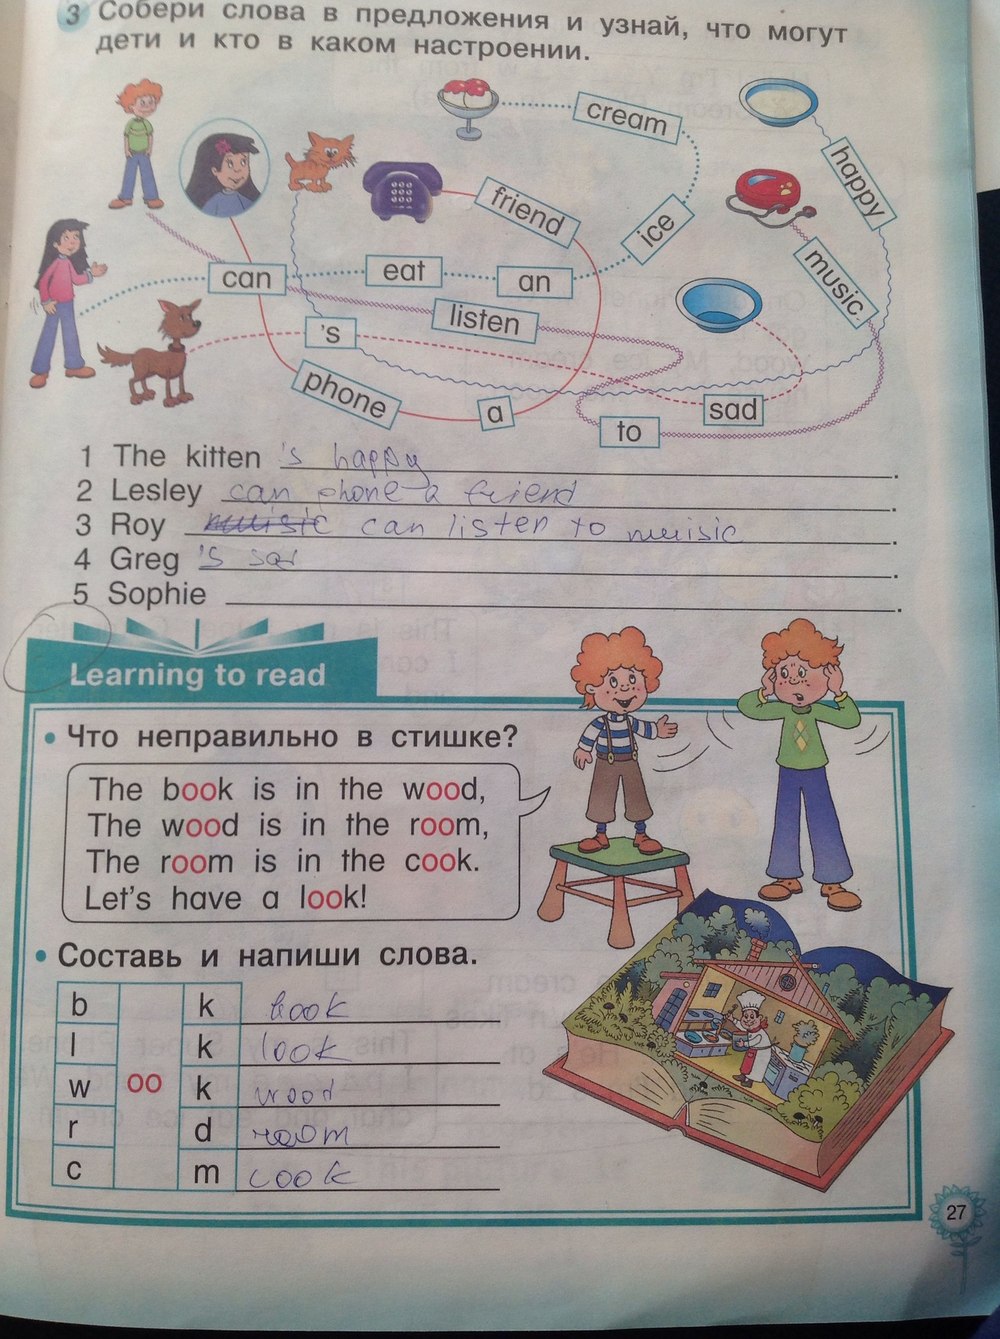 3 Собери слова в предложения и узнай, что могут
дети и кто в каком настроении.
cream
happy
friend
ice
music
can
eat
an
listen
's
phone
a
sad
to
1 The kitten 's happy.
2 Lesley can phone a friend.
3 Roy can listen to muisic.
4 Greg 's sad.
5 Sophie .
Learning to read
• Что неправильно в стишке?
The book is in the wood,
The wood is in the room,
The room is in the cook.
Let's have a look!
• Составь и напиши слова.
b k book
l k look
w oo k wood
r d room
c m cook
27